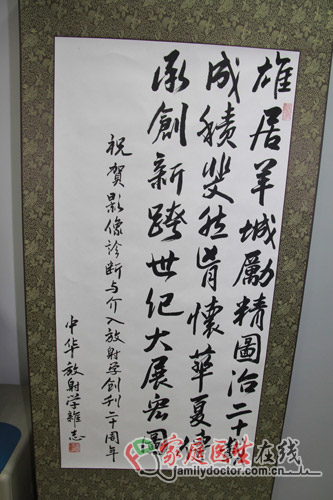 雄居羊城勵精圖治二十載
成績斐然胸懷華夏
承創新跨世纪大展宏圖
祝賀影像诊断与介入放射学創刊二十周年
中华放射学雜志
家庭医生在线
familydoctor.com.cn